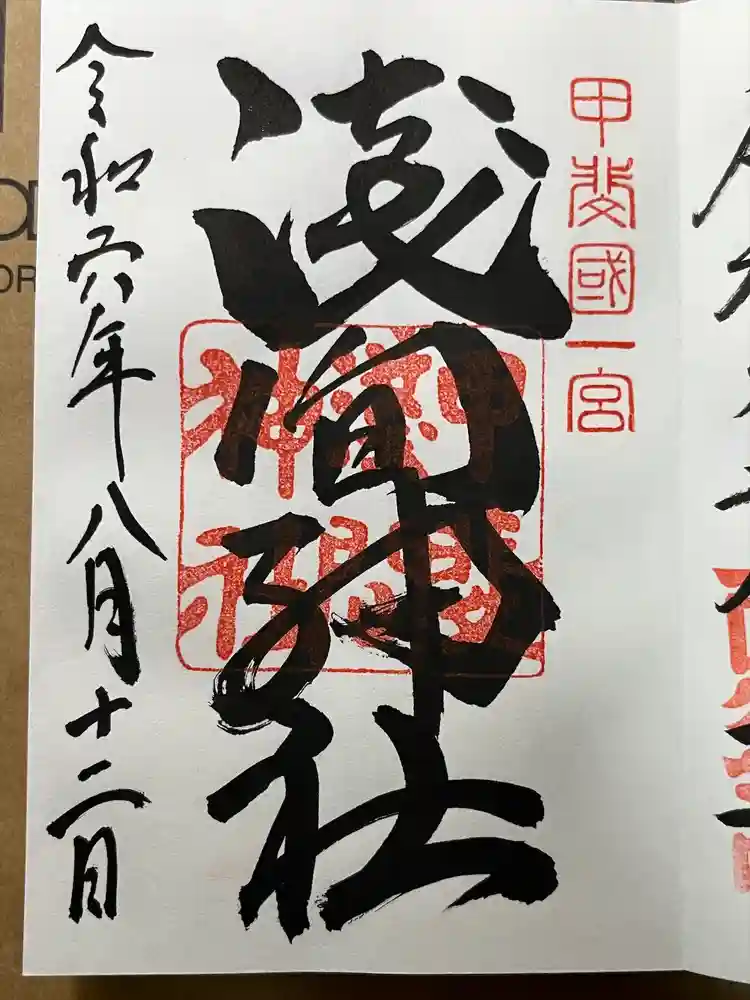 甲斐國一宮
浅間神社
令和六年八月十二日